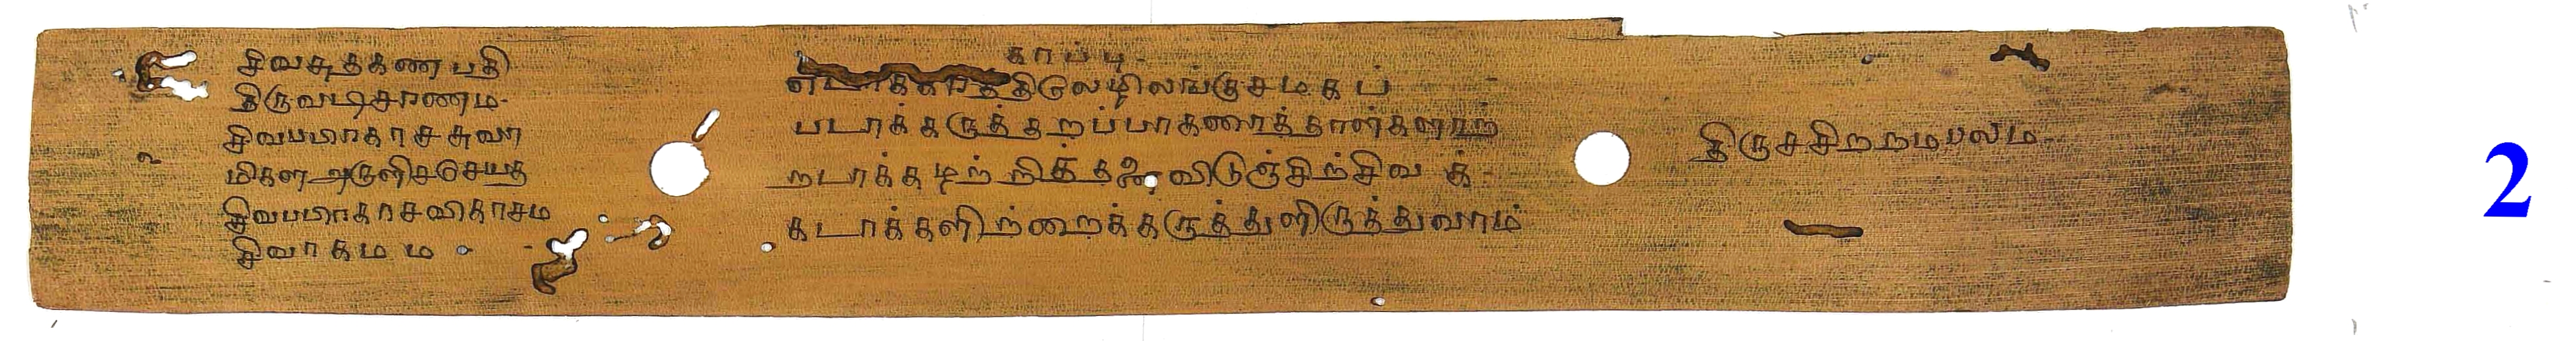 சிவசுதகணபதி
திருவடிசரணம
சிவபபிரகாசசுவா
மிகள அருளிசசெயத
சிவபபிரகாசவிகாசம
சிவாகமம
காப்பு
திலேழிலங்குசமகப்
படாக்கருத்தறப்பாகணைத்தாள்களாற்
றடாக்க விடுஞ்சிற்சிவக்
கடாக்களிற்றைக்கருத்துளிருத்துவாம்
திருசசிறறமபலம
2